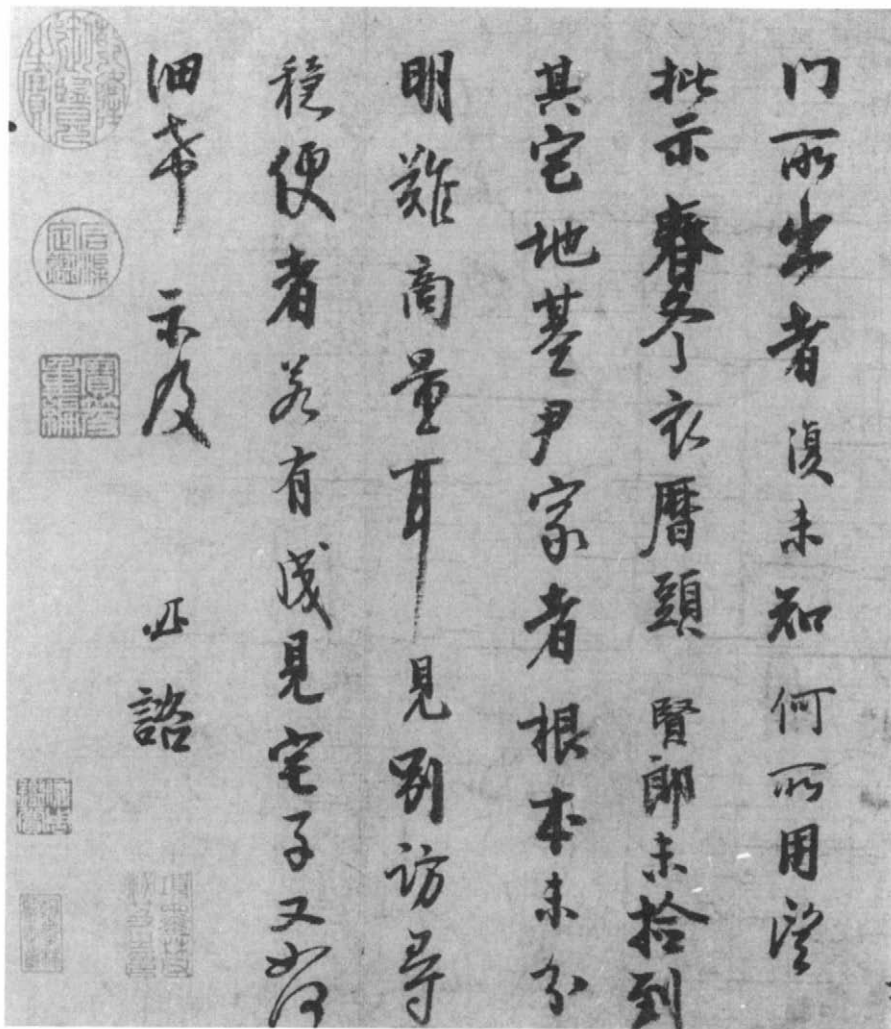 门所出者须未知何所用望
批示春冬衣曆頭賢郎未捡到
其宅地基尹家者根本未分
明難商量耳見别访尋
穏便者若有成見宅子又如何
細希示及
必諮